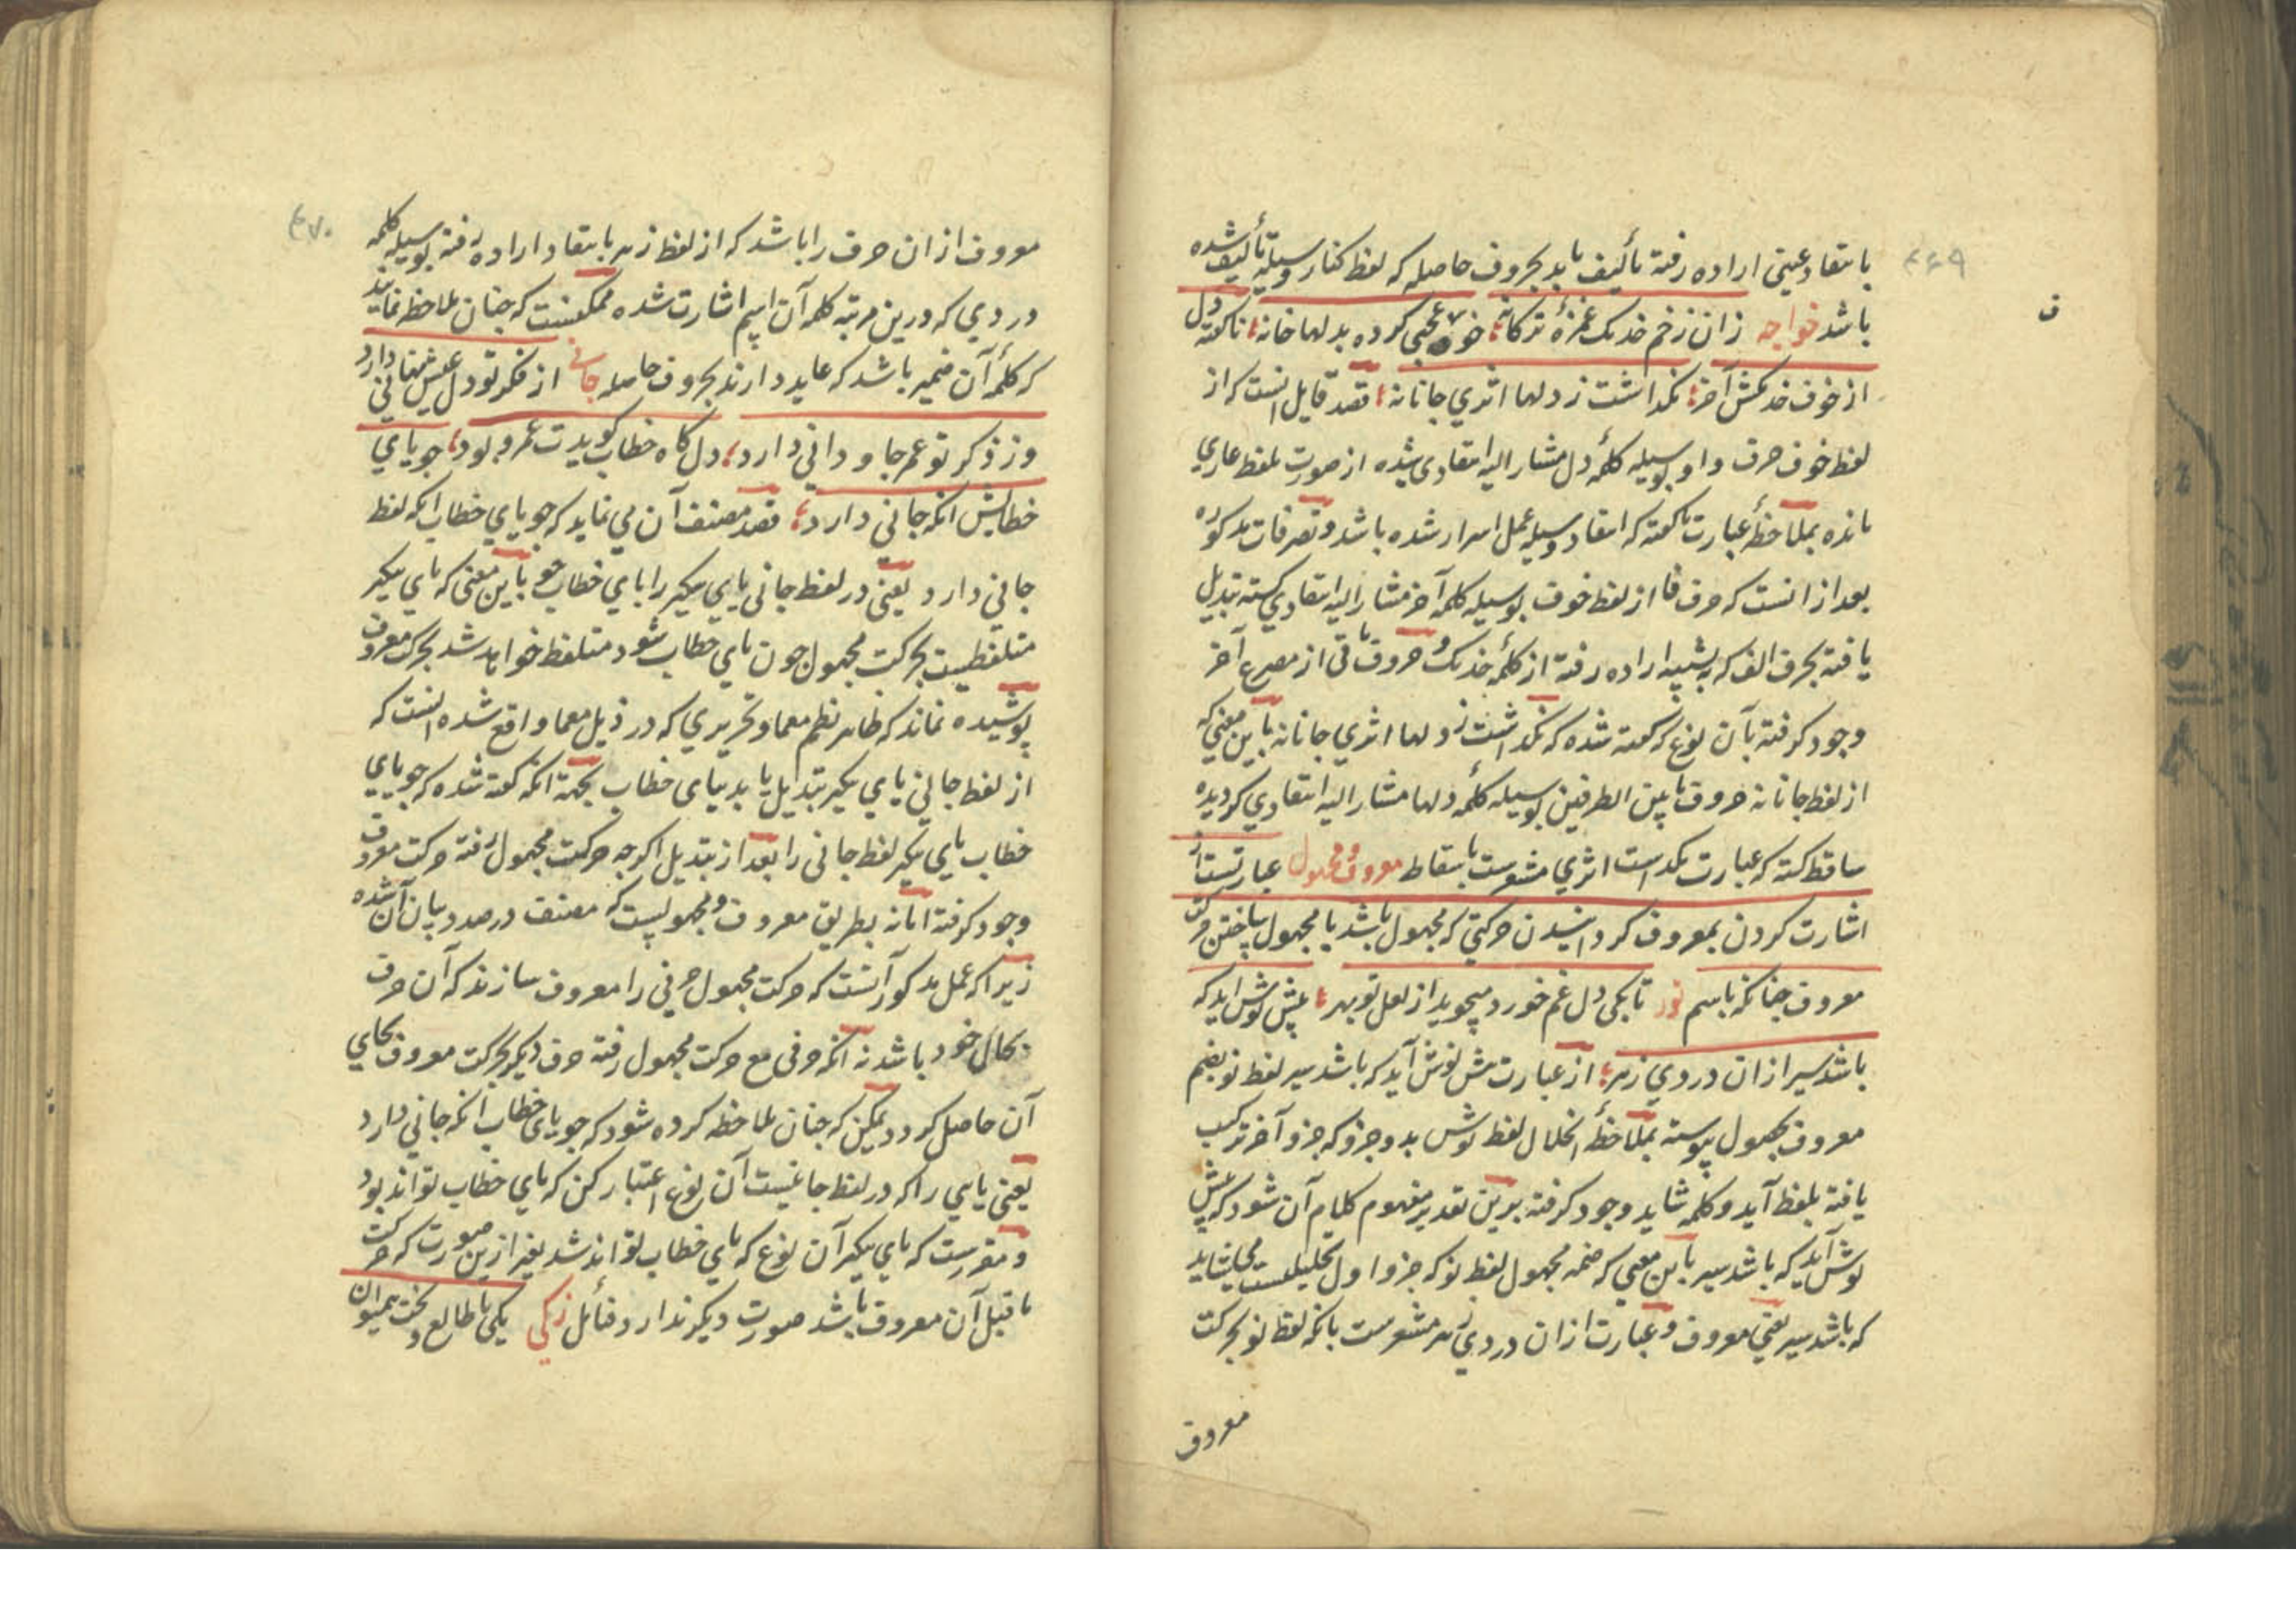 ۴۶۹
بانتقاد عینی اراده رفته تألیف یابد بحروف حاصله که لفظ کنار وسیله تألیف شده
ف
باشد خواجه زان زخم خدنک غمزهٔ ترکانه خو عجبی کرده بدلها خانه ناکفته دل
از خوف خدنکش آخر نکداشت ز دلها اثری جانانه قصد قایل انست که از
لفظ خوف حرف واو بوسیله کلمهٔ دل مشار الیه انتقادی شده از صورت لفظ عاری
مانده بملاحظهٔ عبارت ناکفته که انتقاد وسیله عمل اسرار شده باشد و تصرفات مذکوره
بعد از انست که حرف فا از لفظ خوف بوسیله کلمه آخر مشار الیه انتقادی کشته تبدیل
یافته بحرف الف که بتشبیه اراده رفته از کلمهٔ خدنک و حروف باقی از مصرع آخر
وجود کرفته بآن نوع که کفته شده که نکداشت ز دلها اثری جانانه باین معنی که
از لفظ جانانه حروف مابین الطرفین بوسیله کلمهٔ دلها مشار الیه انتقادی کردیده
ساقط کشته که عبارت نکداشت اثری مشعرست باسقاط معروف و مجهول عبارتست از
اشارت کردن بمعروف کردانیدن حرکتی که مجهول باشد یا مجهول ساختن حرکت
معروف چنانکه باسم نور تا بکی دل غم خورد میجوید از لعل تو بهر پیش نوش آید که
باشد سیر ازان دردی زهر از عبارت پیش نوش آید که باشد سیر لفظ نو بضم
معروف بمجهول پیوسته بملاحظهٔ انحلال لفظ نوش بدو جزو که جزو آخر ترکیب
یافته بلفظ آید و کلمه شاید وجود کرفته برین تقدیر مفهوم کلام آن شود که پیش
نوش آید که باشد سیر باین معنی که ضمه مجهول لفظ نو که جزو اول تحلیلست می شاید
که باشد سیر یعنی معروف و عبارت ازان دردی زهر مشعرست بانکه لفظ نو بحرکت
معروف
۴۷۰
معروف ازان حرف را باشد که از لفظ زهر بانتقاد اراده رفته بوسیله کلمه
دردی که درین مرتبه کلمه آن اسم اشارت شده ممکنست که چنان ملاحظه نمایند
که کلمهٔ آن ضمیر باشد که عاید دارند بحروف حاصله جانی از فکر تو دل عیش نهانی دارد
وز ذکر تو عمر جاودانی دارد دل کاه خطاب کویدت عمر و بود جویای
خطابش انکه جانی دارد قصد مصنف آن می نماید که جویای خطاب انکه لفظ
جانی دارد یعنی در لفظ جانی یای نکیر را یای خطاب جو باین معنی که یای نکیر
متلفظیست بحرکت مجهول چون یای خطاب شود متلفظ خواهد شد بحرکت معروف
پوشیده نماند که ظاهر نظم معما و تحریری که در ذیل معما واقع شده انست که
از لفظ جانی یای نکیر تبدیل یابد بیای خطاب بجهة انکه کفته شده که جویای
خطاب یای نکیر لفظ جانی را بعد از تبدیل اکرچه حرکت مجهول رفته حرکت معروف
وجود کرفته اما نه بطریق معروف و مجهولیست که مصنف درصدد بیان آن شده
زیرا که عمل مذکور آنست که حرکت مجهول حرفی را معروف سازند که آن حرف
بحال خود باشد نه انکه حرفی مع حرکت مجهول رفته حرف دیکر بحرکت معروف بجای
آن حاصل کردد ممکن که چنان ملاحظه کرده شود که جویای خطاب انکه جانی دارد
یعنی یایی را که در لفظ جانیست آن نوع اعتبار کن که یای خطاب تواند بود
و مقررست که یای نکیر آن نوع که یای خطاب تواند شد بغیر ازین صورت که حرکت
ماقبل آن معروف باشد صورت دیکر ندارد و قائل زکی یکی با طالع و بخت همیون